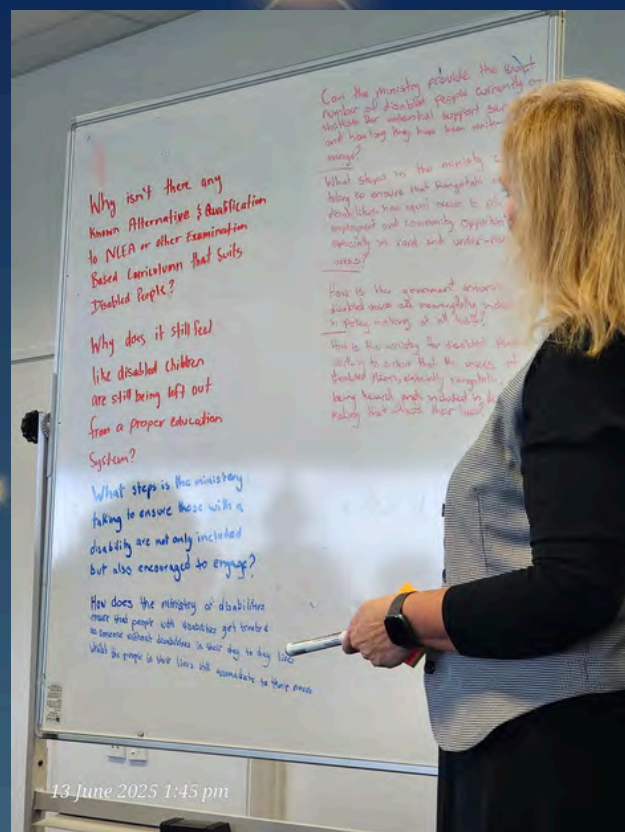 Why isn't there any
Known Alternative & Qualification
to NCEA or other Examination
Based Curriculumn that Suits
Disabled People?
Why does it still feel
like disabled children
are still being left out
from a proper education
System?
What steps is the ministery
taking to ensure those with a
disability are not only included
but also encouraged to engage?
How does the ministry of disabilities
ensure that people with disabilities get treated
as someone without disabilities in their day to day lives
whilst the people in their lives still accomodate to their needs
Can the ministry provide the exact
number of disabled people currently on
for essential support
and how long they have been
What steps is the ministry
taking to ensure that Rangatahi
disabilities have equal access to
employment and community
especially in rural and under
areas?
How is the government
disabled voices are meaningfully
in policy making at all levels?
How is the ministry for disabled
working to ensure that the voices of
disabled especially rangatahi
being heard and included in
making that affects their lives?
13 June 2025 1:45 pm